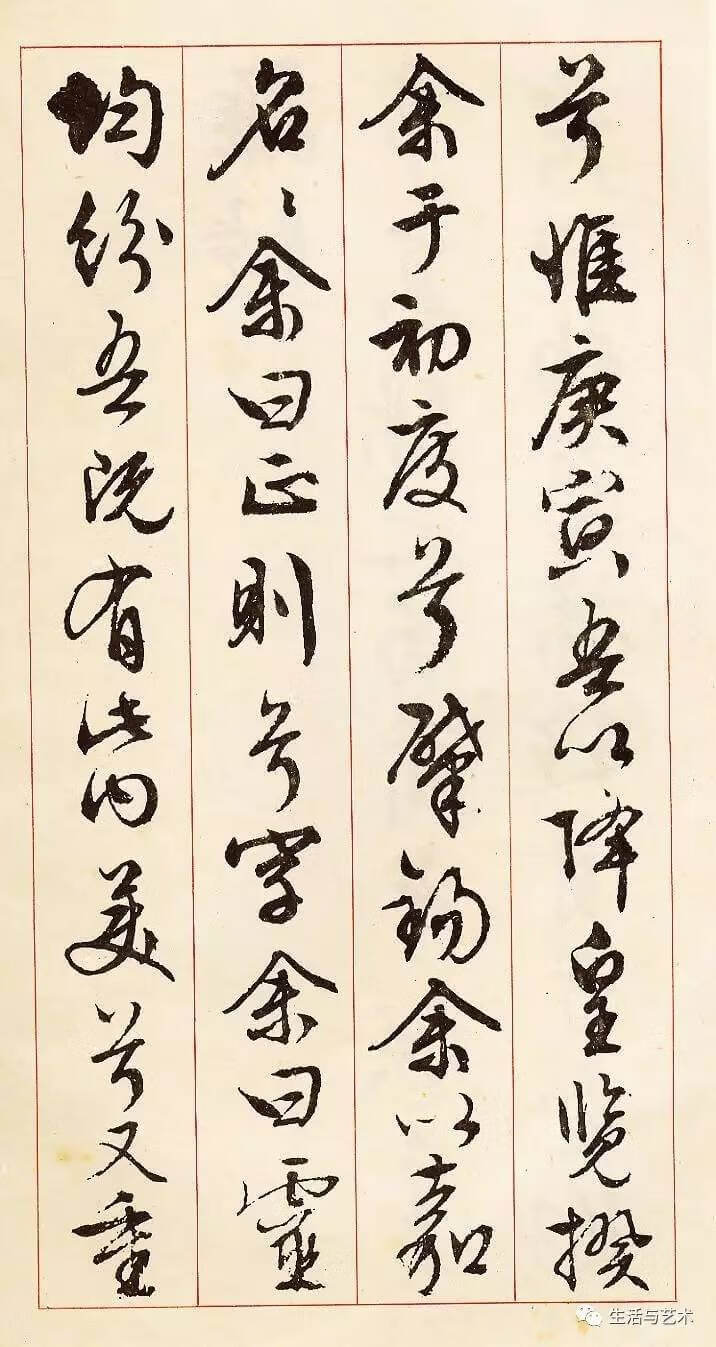 兮惟庚寅吾以降皇览揆
余于初度兮肇錫余以嘉
名〻余曰正則兮字余曰靈
均紛吾既有此内美兮又重
生活与艺术